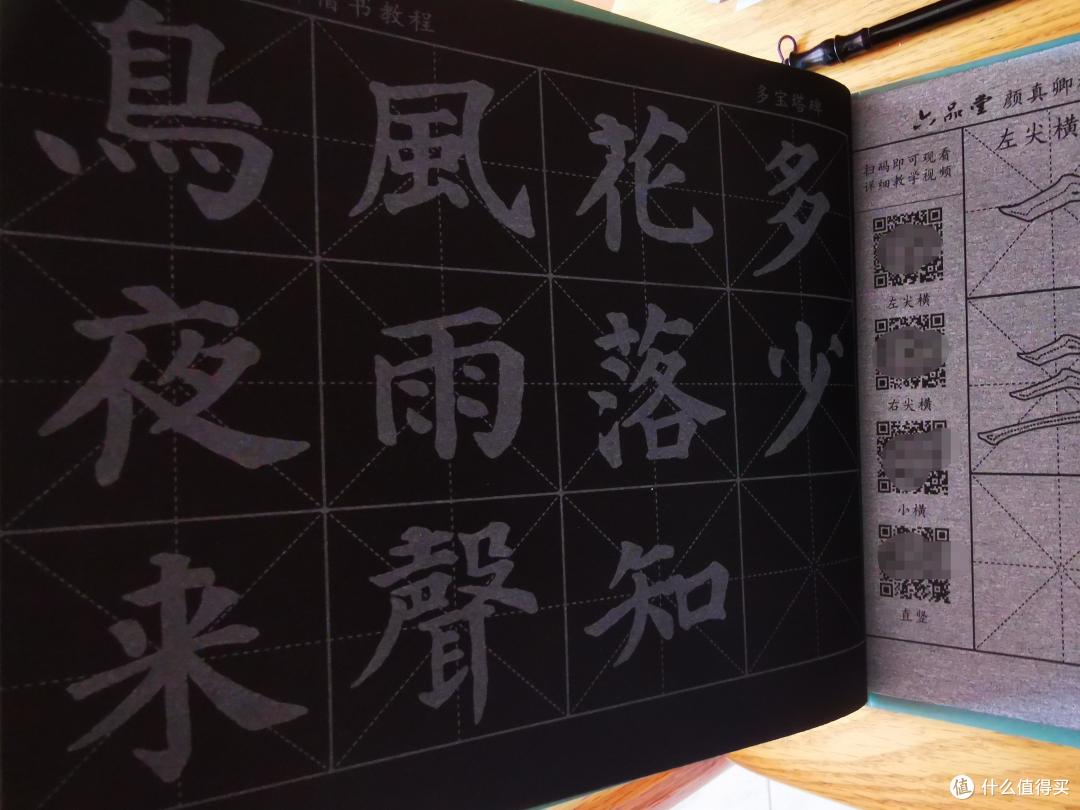 楷书教程
多宝塔碑
鳥夜来
風雨聲
花落知
多少
六品堂 颜真卿
扫码即可观看
详细教学视频
左尖横
右尖横
小横
直竖
左尖横
值 什么值得买